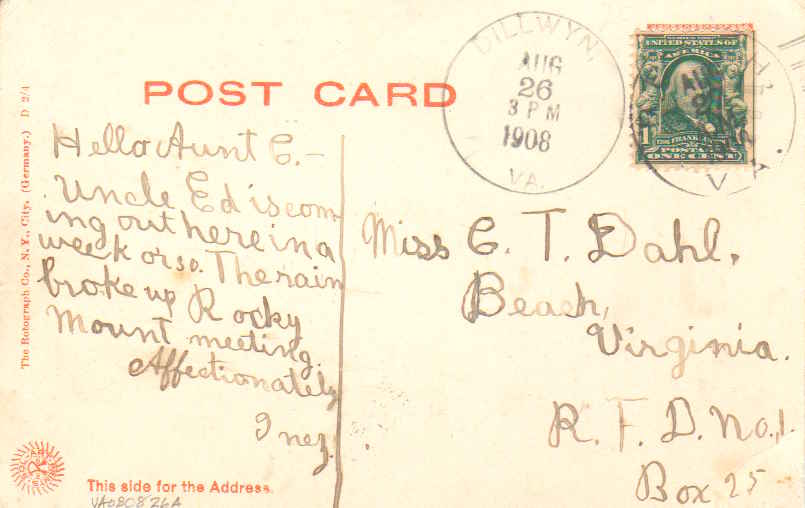 POST CARD
DILLWYN,
AUG
26
3 PM
1908
VA.
UNITED STATES OF
AMERICA
POSTAGE
ONE CENT
VA.
Hello Aunt C. –
Uncle Ed is com-
ing out here in a
week or so. The rain
broke up Rocky
Mount meeting.
Affectionately
Inez.
Miss C. T. Dahl,
Beach,
Virginia.
R. F. D. No, 1.
Box 25
The Rotograph Co., N. Y., City. (Germany.) D 2/4
This side for the Address.
VA080826A